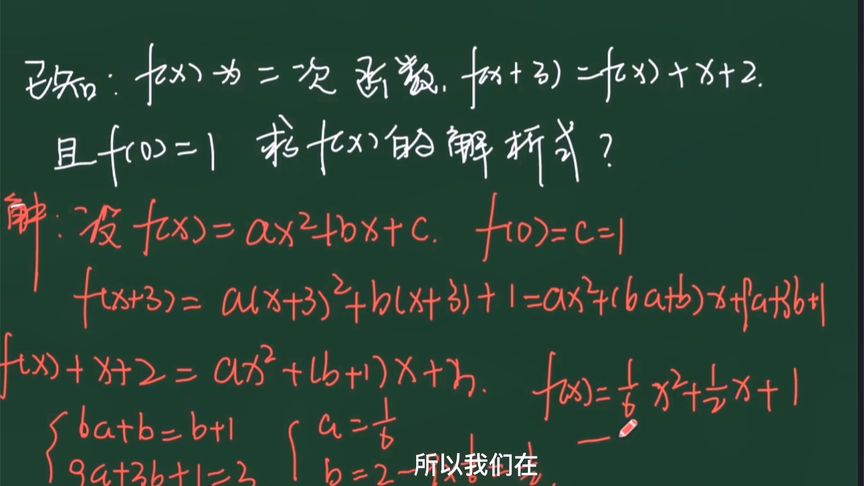 已知: f(x)为二次函数, f(x+3)=f(x)+x+2.
且f(0)=1 求f(x)的解析式?
解: 设f(x)=ax²+bx+c. f(0)=c=1
f(x+3)=a(x+3)²+b(x+3)+1=ax²+(6a+b)x+9a+3b+1
f(x)+x+2=ax²+(b+1)x+3.
f(x)=1/6x²+1/2x+1
6a+b=b+1
9a+3b+1=3
a=1/6
b=2-9×1/6=1/2.
所以我们在